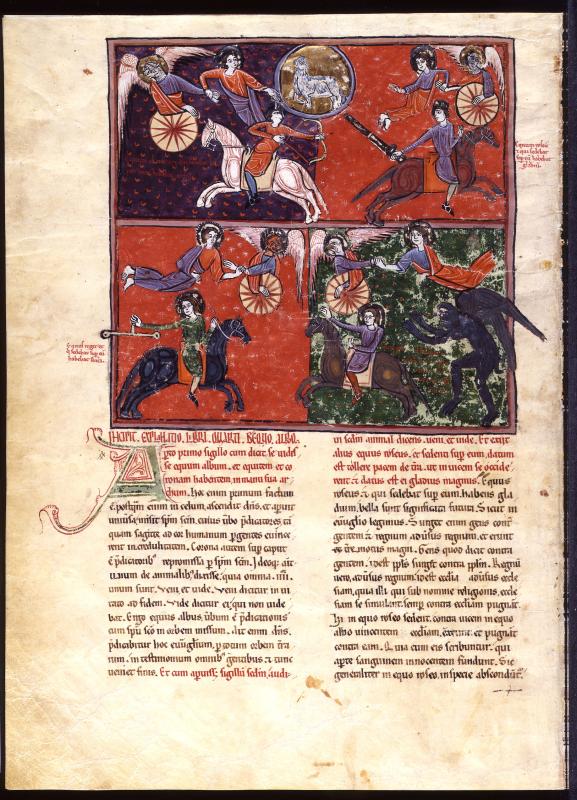 Equum roseū
⁊ qui sedebat
sup eū habebat
gladiū.
Equus niger et
q̄ sedebat sup eū
habebat
INCIPIT. EXPLANATIO. LIBRI. QUARTI. DE EQUO. ALBO.
Aperto primo sigillo cum dicit. se uidis
se equum album. et equitem et co
ronam habentem. in manu sua ar
cum. hoc enim primum factum
Postqm enim in celum. ascendit dn̄s. et apuit
uniuersa. misit sp̄m scm̄. cuius ūbo p̄dicatores. tā
quam sagitte ad cor humanum p̄gentes. euince
rent incredulitatem. Corona autem sup caput
ē p̄dicatorib' repromissa p sp̄m scm̄. Ideoq; ait
unum de animalib; dixisse. quia omnia .iiii.
unum sunt. Veni. et uide. Veni dicitur in ui
tato ad fidem. Uide dicitur ei. qui non uide
bat. Ergo equus albus. ūbum ē p̄dicationis
cum sp̄u sc̄o in orbem missum. Ait enim dn̄s.
p̄dicabitur hoc euūglium. p totum orbem t̄ra
rum. in testimonium omnib; gentibus ⁊ tunc
ueniet finis. Et cum apuiss; sigillū scdm̄. audi
ui scdm̄ animal dicens. ueni. et uide. Et exiit
alius equus roseus. et sedenti sup eum. datum
est tollere pacem de t̄ra. ut inuicem se occide
rent ⁊ datus est ei gladius magnus. Equus
roseus ⁊ qui sedebat sup eum. habens gla
dium. bella sunt significata futura. Sicut in
euūglio legimus. Surget enim gens cont
gentem ⁊ regnum aduersus regnum. et erunt
t̄re motus magni. Gens quod dicit contra
gentem. idest pp̄ls surget contra pp̄lm. Regnū
uero. aduersus regnum. idest ecclia aduersus eccle
siam. quia illi qui sub nomine religionis. eccle
siam se simulant. semp contra eccliam pugnāt.
Hi in equo roseo sedent. contra uicem in equo
albo uincentem eccliam. exeunt. et pugnāt
contra eam. Quia cum eis scribuntur. qui
aperte sanguinem innocentem fundunt. Sic
generaliter in equo roseo. in specie abscondūt'.